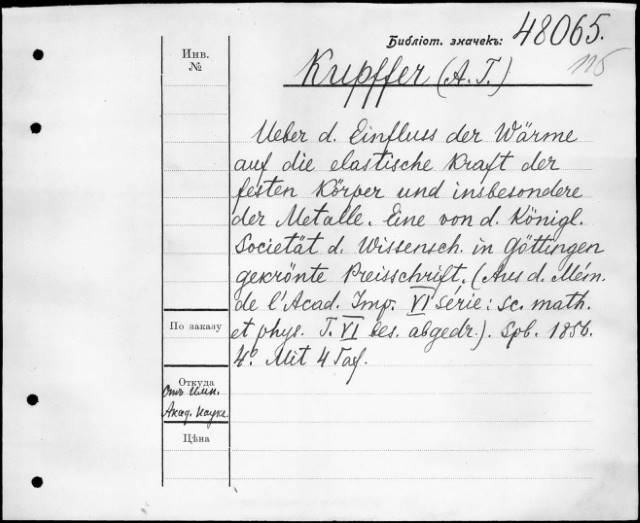 Библiот. значекъ: 48065.
115
Инв.
№
Kupffer (A. T.)
Ueber d. Einfluss der Wärme
auf die elastische Kraft der
festen Körper und insbesondere
der Metalle. Eine von d. Königl.
Societät d. Wissensch. in Göttingen
gekrönte Preisschrift. (Aus d. Mém.
de l'Acad. Imp. VI série: sc. math.
et phys. T. VI bes. abgedr.). Spb. 1856.
4º. Mit 4 Taf.
По заказу
Откуда
Отъ Имп.
Акад. Наукъ
Цѣна